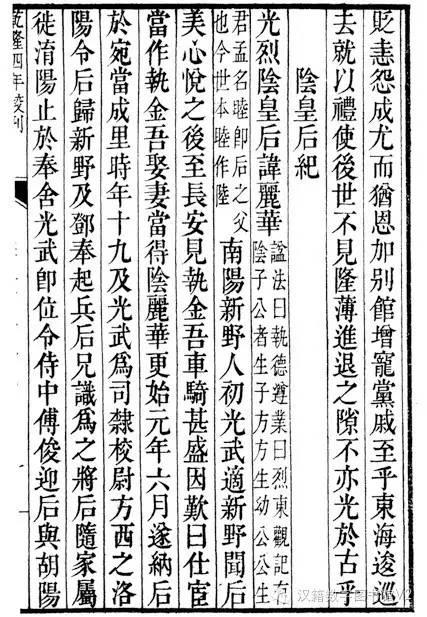 貶恚怨成尤而猶恩加別館增寵黨戚至乎東海逡巡
去就以禮使後世不見隆薄進退之隙不亦光於古乎
陰皇后紀
光烈陰皇后諱麗華
諡法曰執德遵業曰烈東觀記有
陰子公者生子方方生幼公公生
君孟名睦即后之父
也今世本睦作陸
南陽新野人初光武適新野聞后
美心悅之後至長安見執金吾車騎甚盛因歎曰仕宦
當作執金吾娶妻當得陰麗華更始元年六月遂納后
於宛當成里時年十九及光武為司隸校尉方西之洛
陽令后歸新野及鄧奉起兵后兄識為之將后隨家屬
徙淯陽止於奉舍光武即位令侍中傅俊迎后與胡陽
乾隆四年校刊